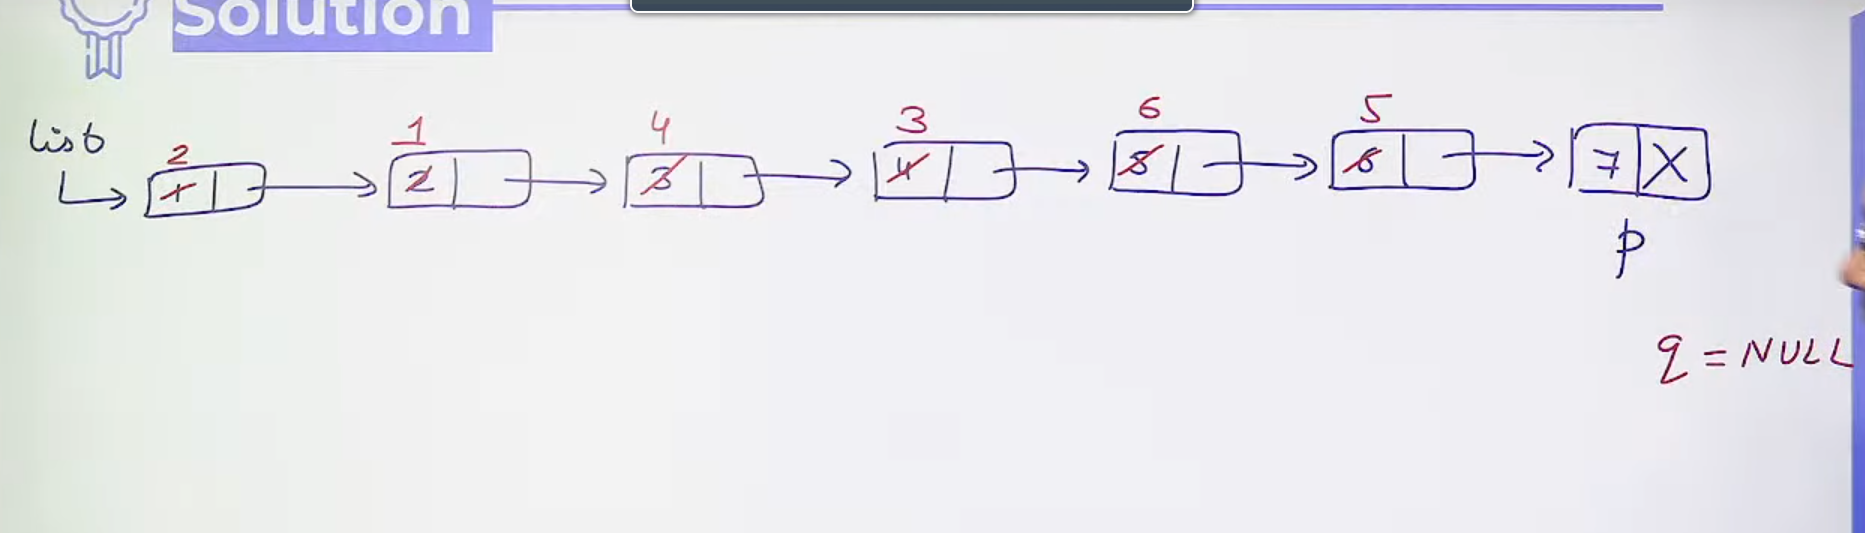 Solution
list
2 1 4 3 6 5
1 2 3 4 5 6 7 X
p
q = NULL